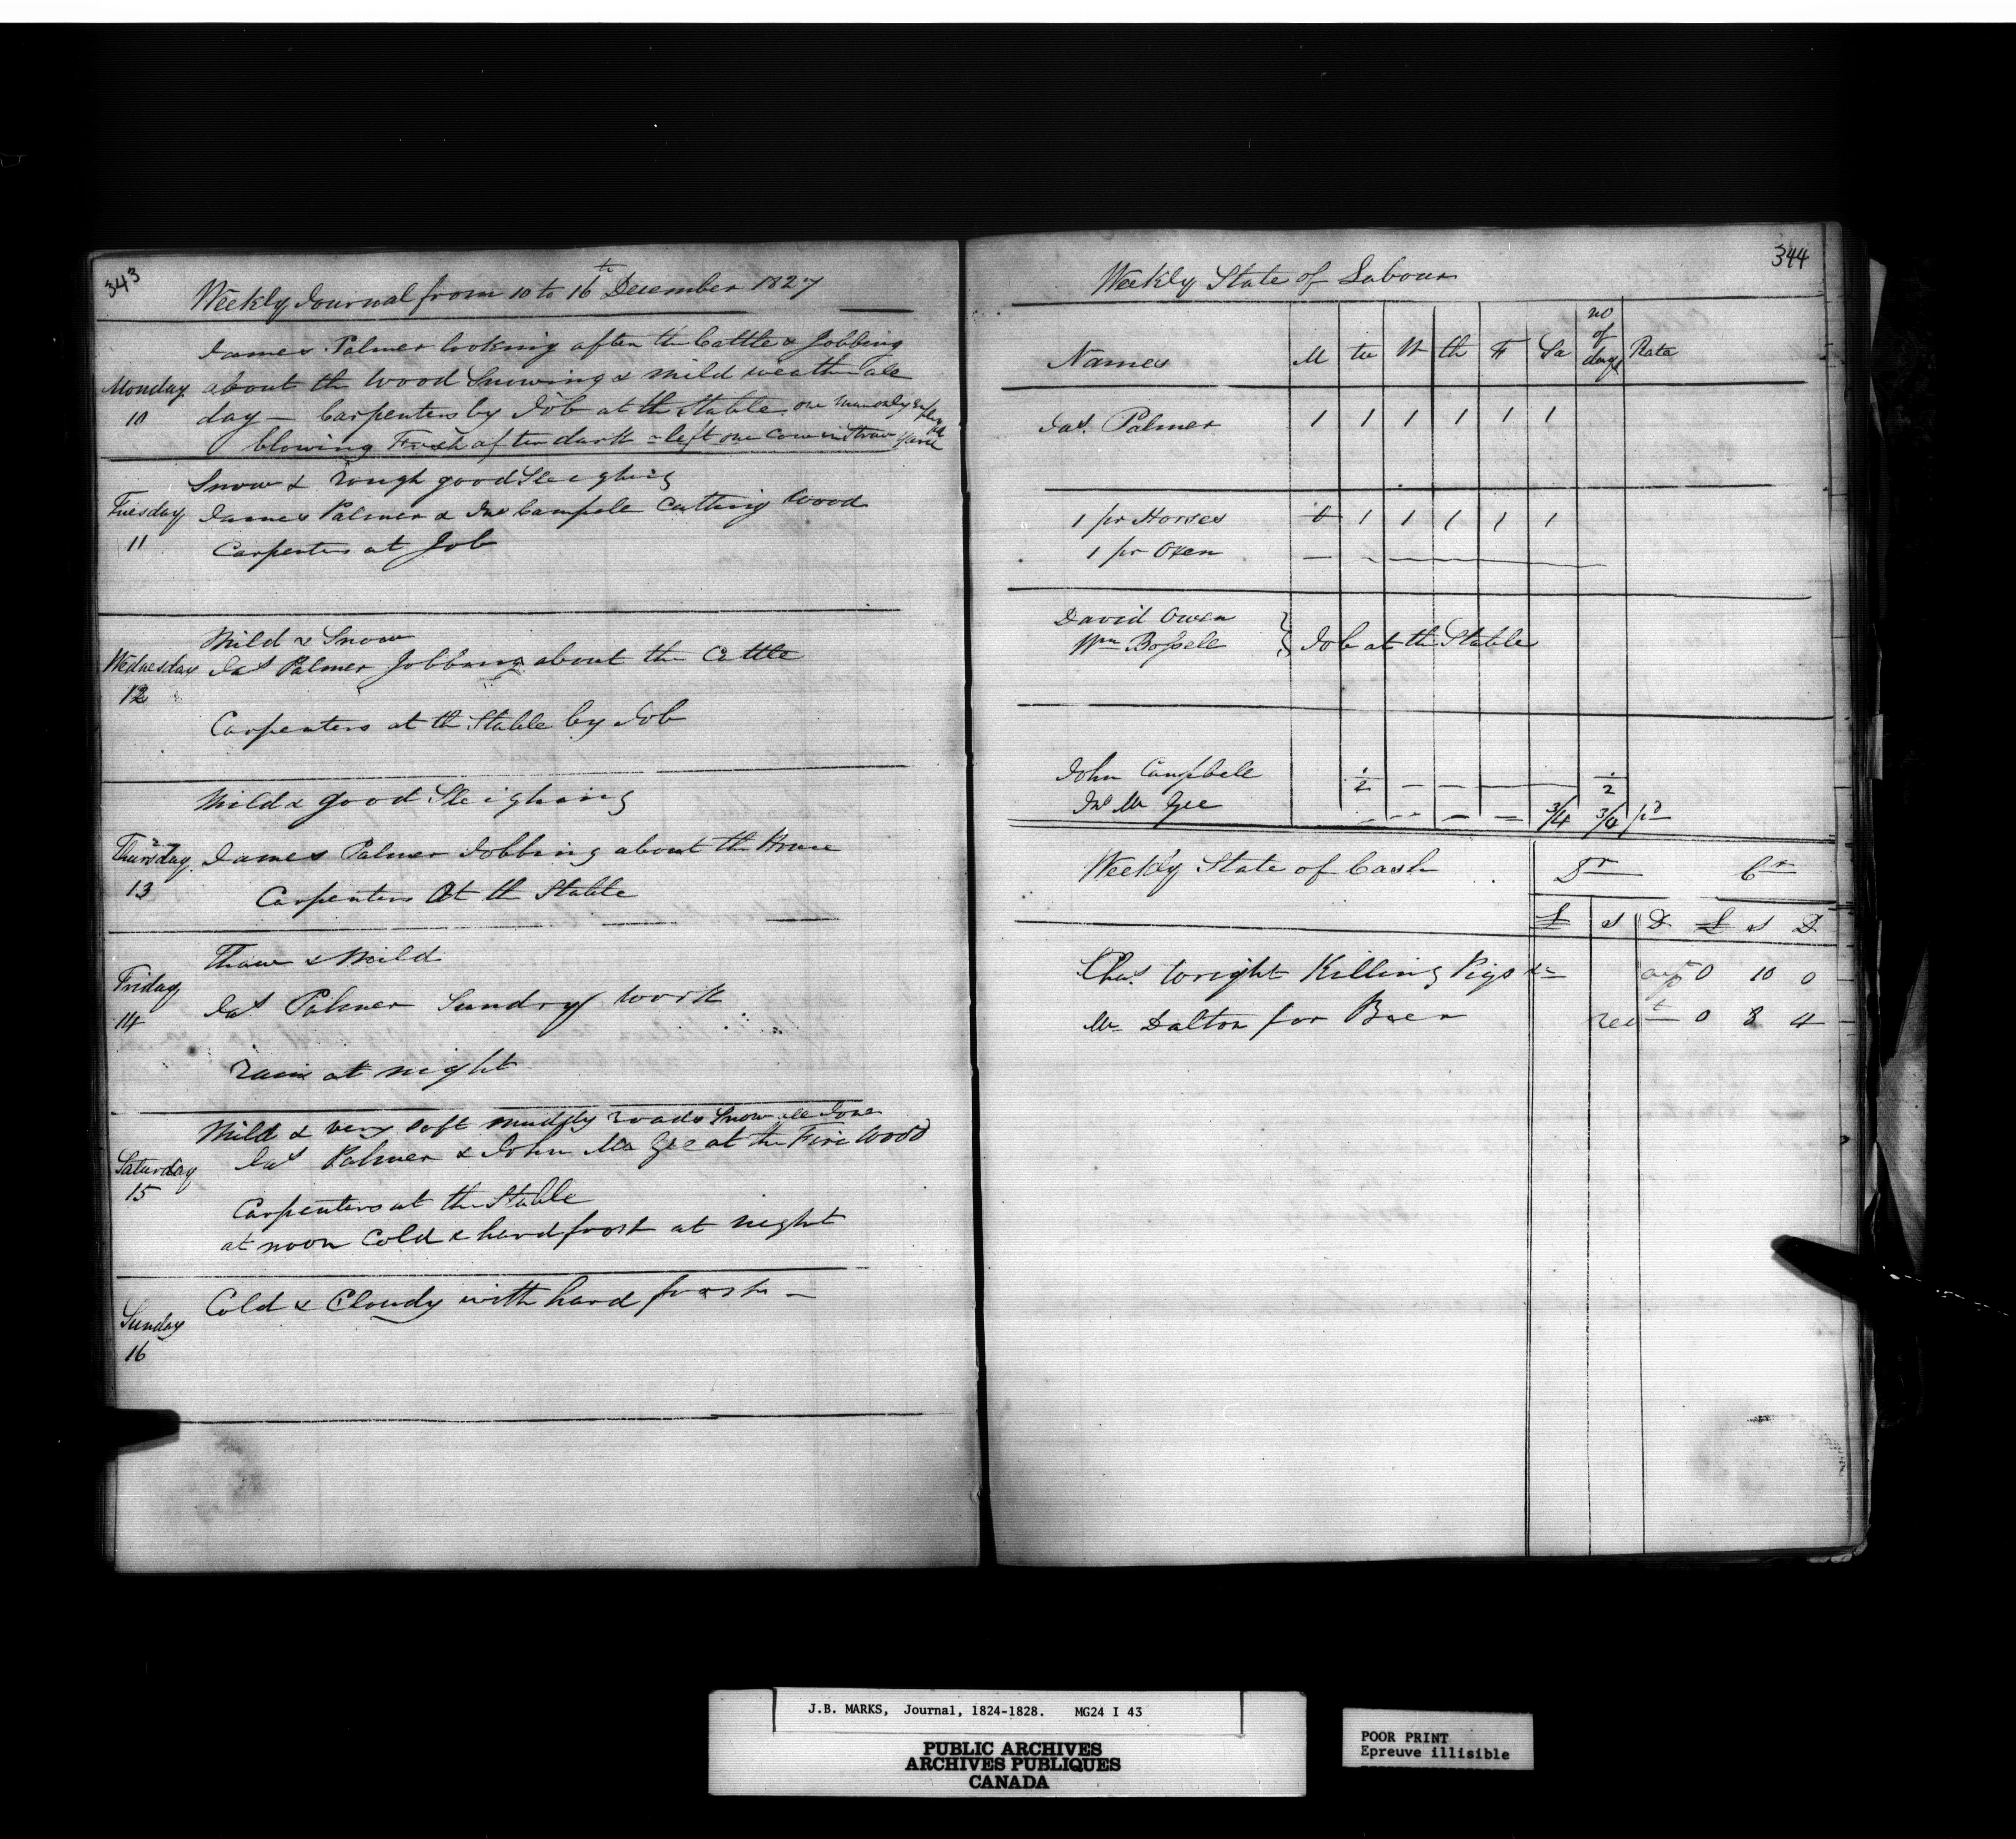 343
Weekly Journal from 10 to 16th December 1827
James Palmer looking after the Cattle & Jobbing
Monday about the Wood Snowing & mild weather all
10 day — Carpenters by Job at the Stable. one man only
blowing Fresh after dark - left one Cow in Straw Yard
Snow & rough good Sleighing
Tuesday James Palmer & Jno Campele Cutting Wood
11 Carpenters at Job
Mild & Snow
Wednesday Jas Palmer Jobbing about the Cattle
12
Carpenters at th Stable by Job
Mild & good Sleighing
Thursday James Palmer Jobbing about th House
13 Carpenters At th Stable
Thaw & Mild
Friday
14 Jas Palmer Sundry work
rain at night
Mild & very soft muddy roads Snow all Gone
Jas Palmer & John Mc Gee at the Fire Wood
Saturday
15 Carpenters at the Stable
at noon Cold & hard frost at night
Cold & Cloudy with hard frost —
Sunday
16
344
Weekly State of Labour
Names M tu W th F Sa no of days Rate
Jas. Palmer 1 1 1 1 1 1
1 pr Horses 0 1 1 1 1 1
1 pr Oxen — - —
David Owen
Wm Bossell } Job at the Stable
John Campbell 1/2 — — — 1/2
Jno Mc Gee — -- — — 3/4 3/4 pd
Weekly State of Cash Dr Cr
£ s D £ s D
Chas. Wright Killing Pigs &c 0 10 0
Mr Dalton for Beer 0 8 4
J.B. MARKS, Journal, 1824-1828. MG24 I 43
PUBLIC ARCHIVES
ARCHIVES PUBLIQUES
CANADA
POOR PRINT
Epreuve illisible